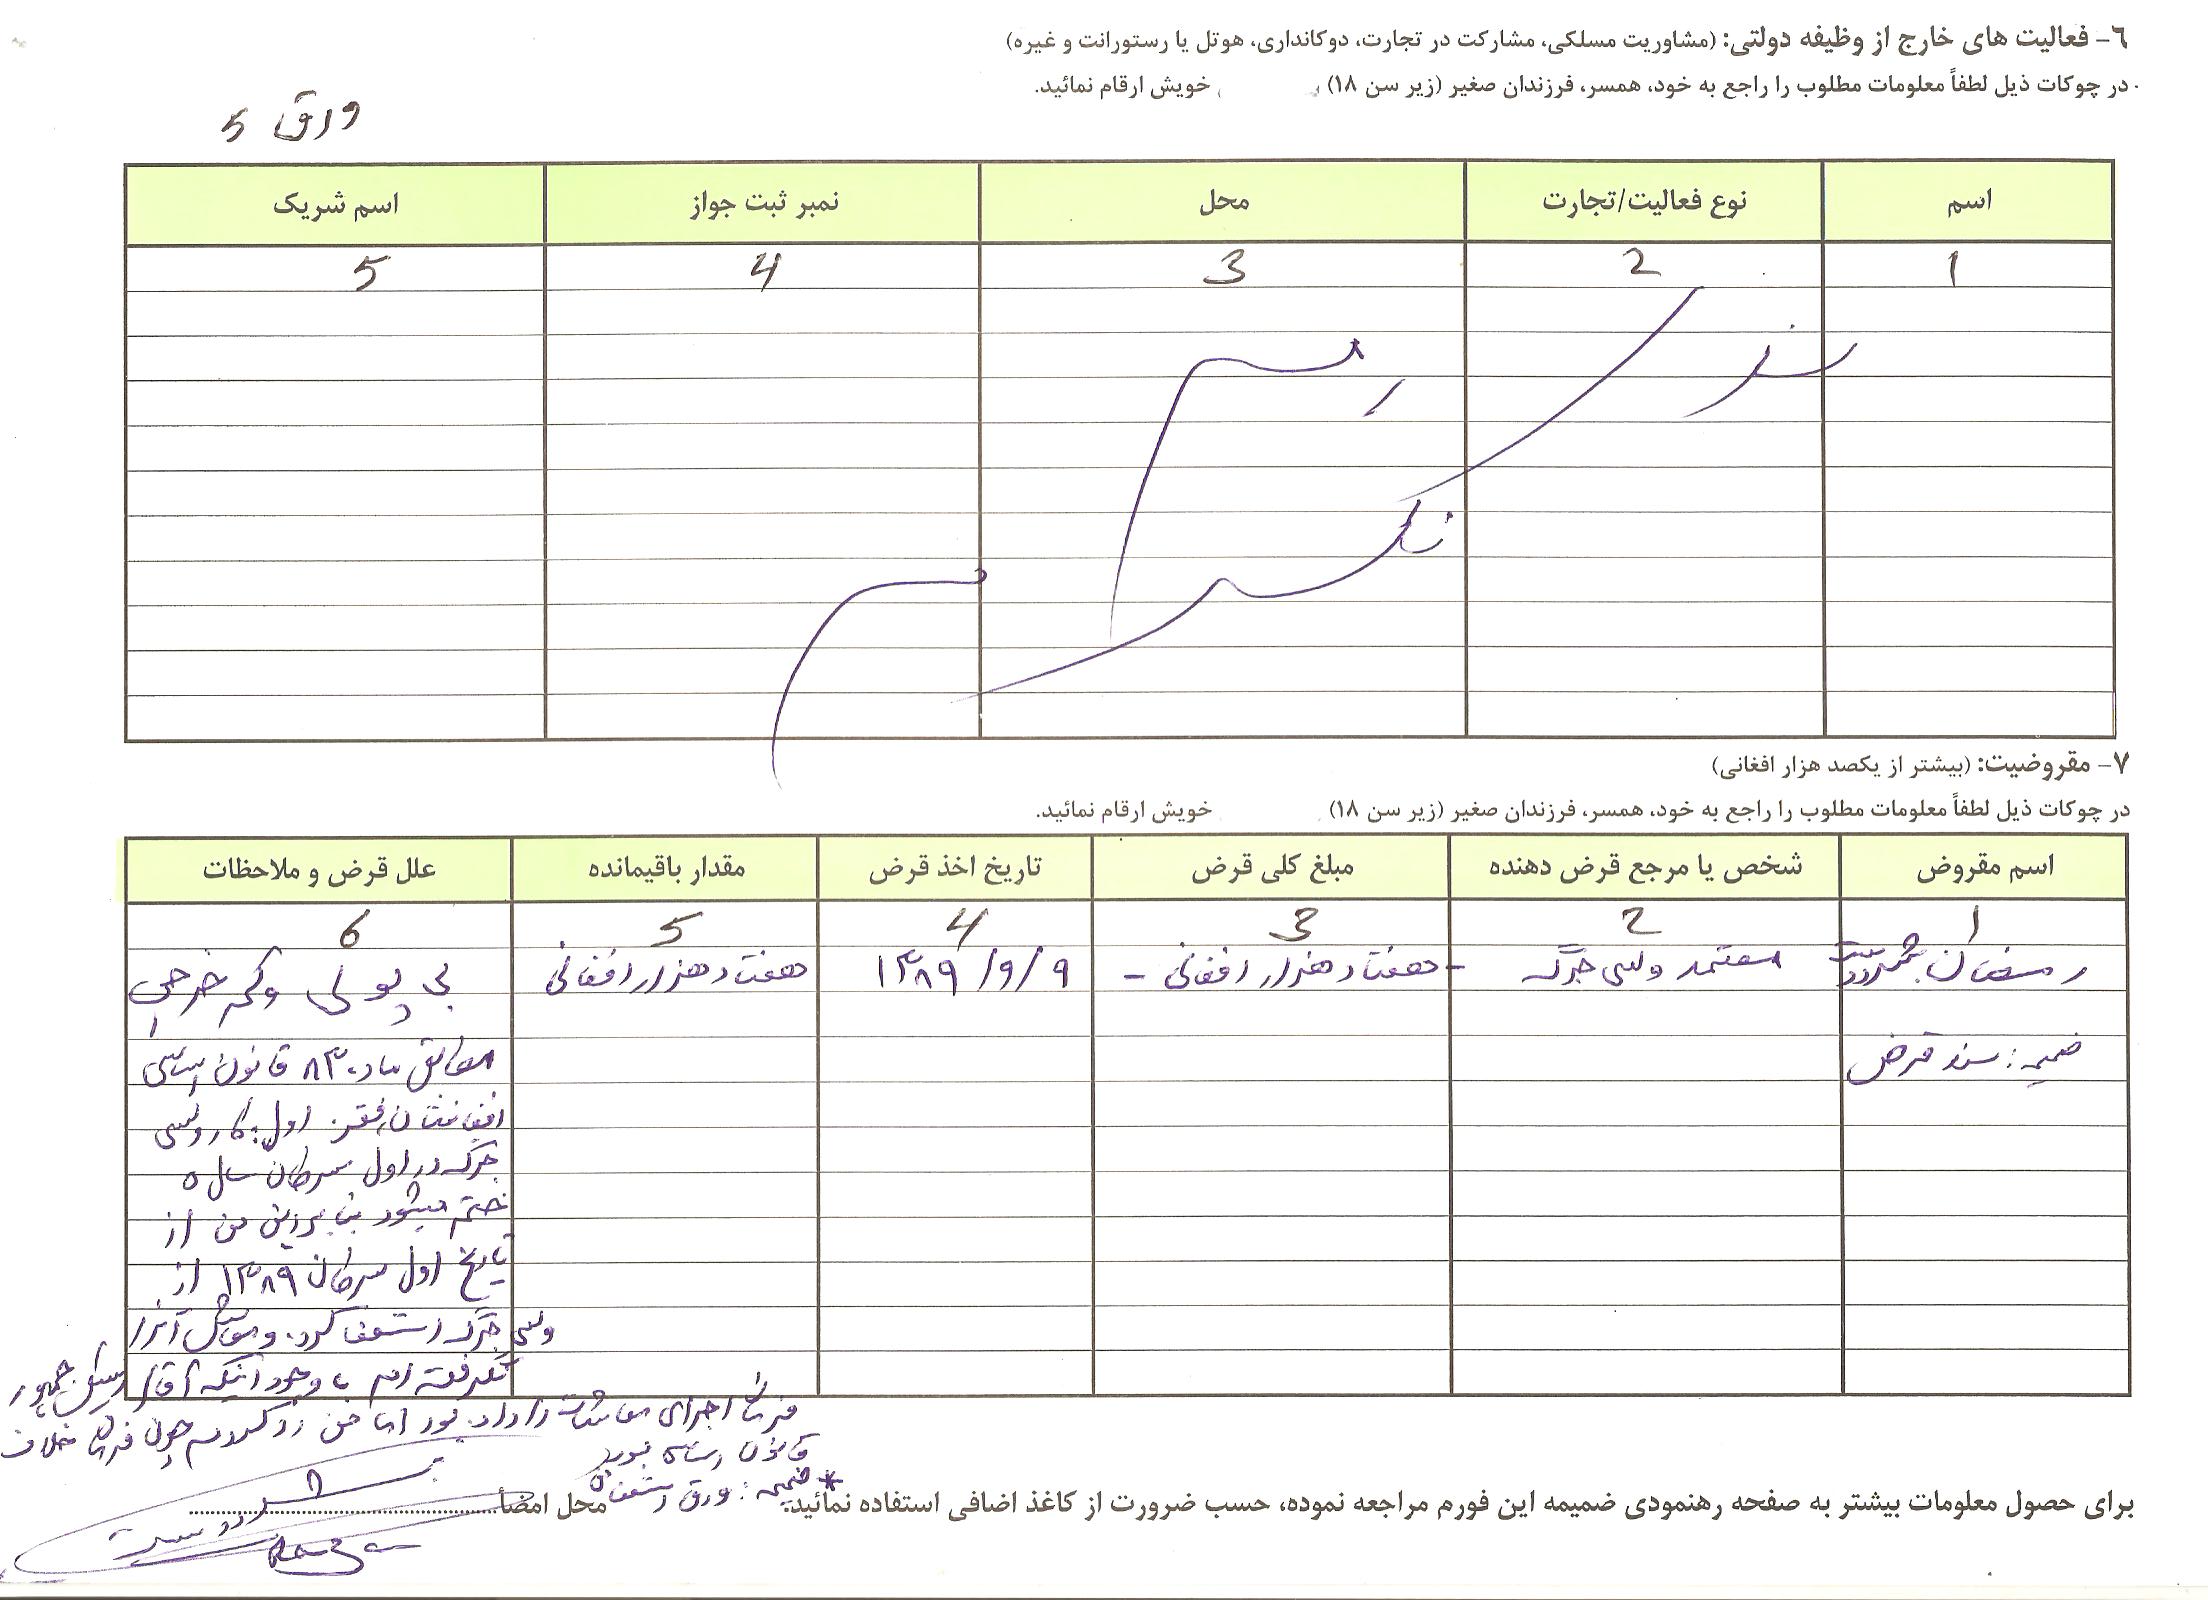 ٦- فعالیت های خارج از وظیفه دولتی: (مشاوریت مسلکی، مشارکت در تجارت، دوکانداری، هوتل یا رستورانت و غیره)
در چوکات ذیل لطفاً معلومات مطلوب را راجع به خود، همسر، فرزندان صغیر (زیر سن ۱۸) خویش ارقام نمائید.
ورق 5
اسم نوع فعالیت/تجارت محل نمبر ثبت جواز اسم شریک
1 2 3 4 5
ندارم
۷- مقروضیت: (بیشتر از یکصد هزار افغانی)
در چوکات ذیل لطفاً معلومات مطلوب را راجع به خود، همسر، فرزندان صغیر (زیر سن ۱۸) خویش ارقام نمائید.
اسم مقروض شخص یا مرجع قرض دهنده مبلغ کلی قرض تاریخ اخذ قرض مقدار باقیمانده علل قرض و ملاحظات
1 2 3 4 5 6
رمضان بشردوست معتمد ولسی جرگه - هفتاد هزار افغانی - ۱۳۸۹/۹/۹ هفتاد هزار افغانی بی پولی و کم خرچی
ضمیمه: سند قرض
مطابق ماده ۸۳ قانون اساسی
افغانستان فقره اول: کار ولسی
جرگه در اول سرطان سال ۵
ختم میشود بنابر این من از
تاریخ اول سرطان ۱۳۸۹ از
ولسی جرگه استعفا کرده و معاش آنرا
نگرفته ام با وجود اینکه آقای رییس جمهور
فرمان اجرای معاشات را داده بود اما من رد کردم چون فرمان خلاف
قانون اساسی بود
* ضمیمه: ورق استعفا
برای حصول معلومات بیشتر به صفحه رهنمودی ضمیمه این فورم مراجعه نموده، حسب ضرورت از کاغذ اضافی استفاده نمائید. محل امضأ